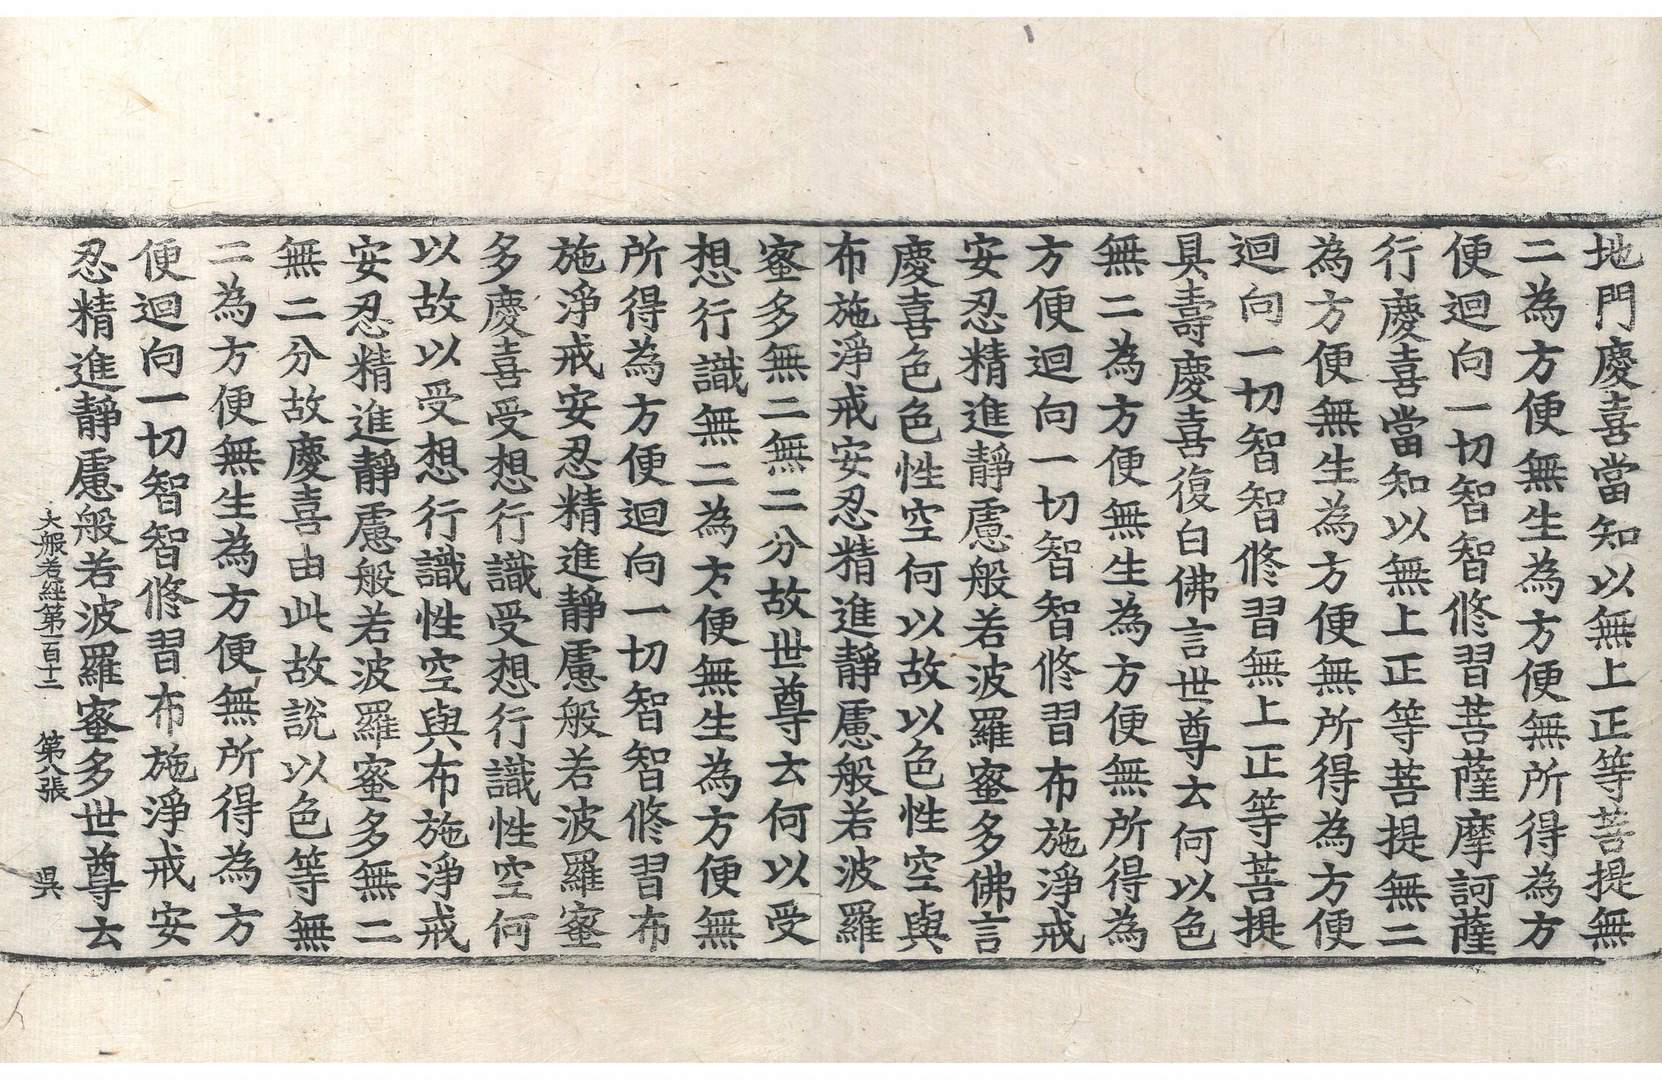 地門慶喜當知以無上正等菩提無
二為方便無生為方便無所得為方
便迴向一切智智修習菩薩摩訶薩
行慶喜當知以無上正等菩提無二
為方便無生為方便無所得為方便
迴向一切智智修習無上正等菩提
具壽慶喜復白佛言世尊云何以色
無二為方便無生為方便無所得為
方便迴向一切智智修習布施淨戒
安忍精進靜慮般若波羅蜜多佛言
慶喜色色性空何以故以色性空與
布施淨戒安忍精進靜慮般若波羅
蜜多無二無二分故世尊云何以受
想行識無二為方便無生為方便無
所得為方便迴向一切智智修習布
施淨戒安忍精進靜慮般若波羅蜜
多慶喜受想行識受想行識性空何
以故以受想行識性空與布施淨戒
安忍精進靜慮般若波羅蜜多無二
無二分故慶喜由此故說以色等無
二為方便無生為方便無所得為方
便迴向一切智智修習布施淨戒安
忍精進靜慮般若波羅蜜多世尊云
大般若經第一百十二 第八張 昃